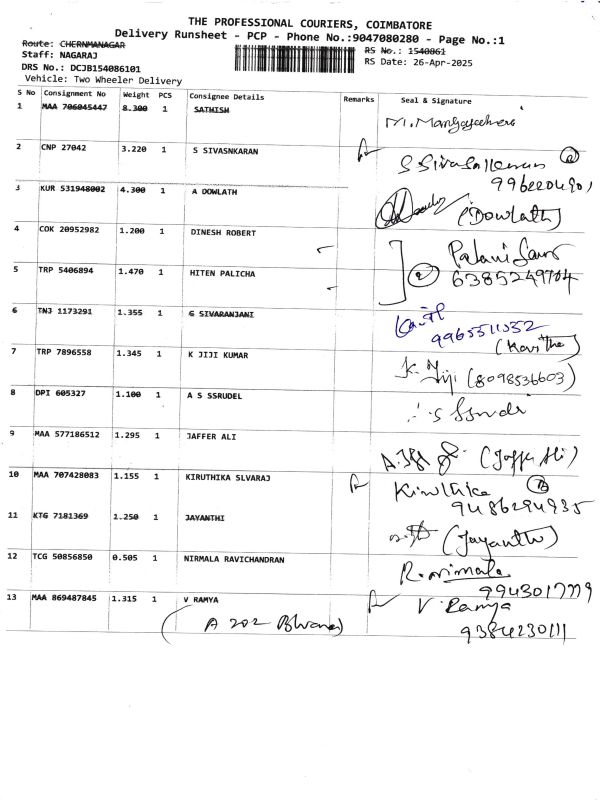 THE PROFESSIONAL COURIERS, COIMBATORE
Delivery Runsheet - PCP - Phone No.:9047080280 - Page No.:1
Route: CHERNMANAGAR
RS No.: 1540861
Staff: NAGARAJ
RS Date: 26-Apr-2025
DRS No.: DCJB154086101
Vehicle: Two Wheeler Delivery
S No Consignment No Weight PCS Consignee Details Remarks Seal & Signature
1 MAA 706045447 8.300 1 SATHISH
2 CNP 27042 3.220 1 S SIVASNKARAN
9962204901
3 KUR 531948002 4.300 1 A DOWLATH (Dowlath)
4 COK 20952982 1.200 1 DINESH ROBERT
5 TRP 5406894 1.470 1 HITEN PALICHA 6385249704
6 TNJ 1173291 1.355 1 G SIVARANJANI
9965511032
(Kavitha)
7 TRP 7896558 1.345 1 K JIJI KUMAR K. Jiji (8098536603)
8 DPI 605327 1.100 1 A S SSRUDEL
9 MAA 577186512 1.295 1 JAFFER ALI (Jaffer Ali)
10 MAA 707428083 1.155 1 KIRUTHIKA SLVARAJ Kiruthika
9486294935
11 KTG 7181369 1.250 1 JAYANTHI (Jayanthi)
12 TCG 50856850 0.505 1 NIRMALA RAVICHANDRAN R. nirmala
9943017779
13 MAA 869487845 1.315 1 V RAMYA V. Ramya
A 202
9384230111